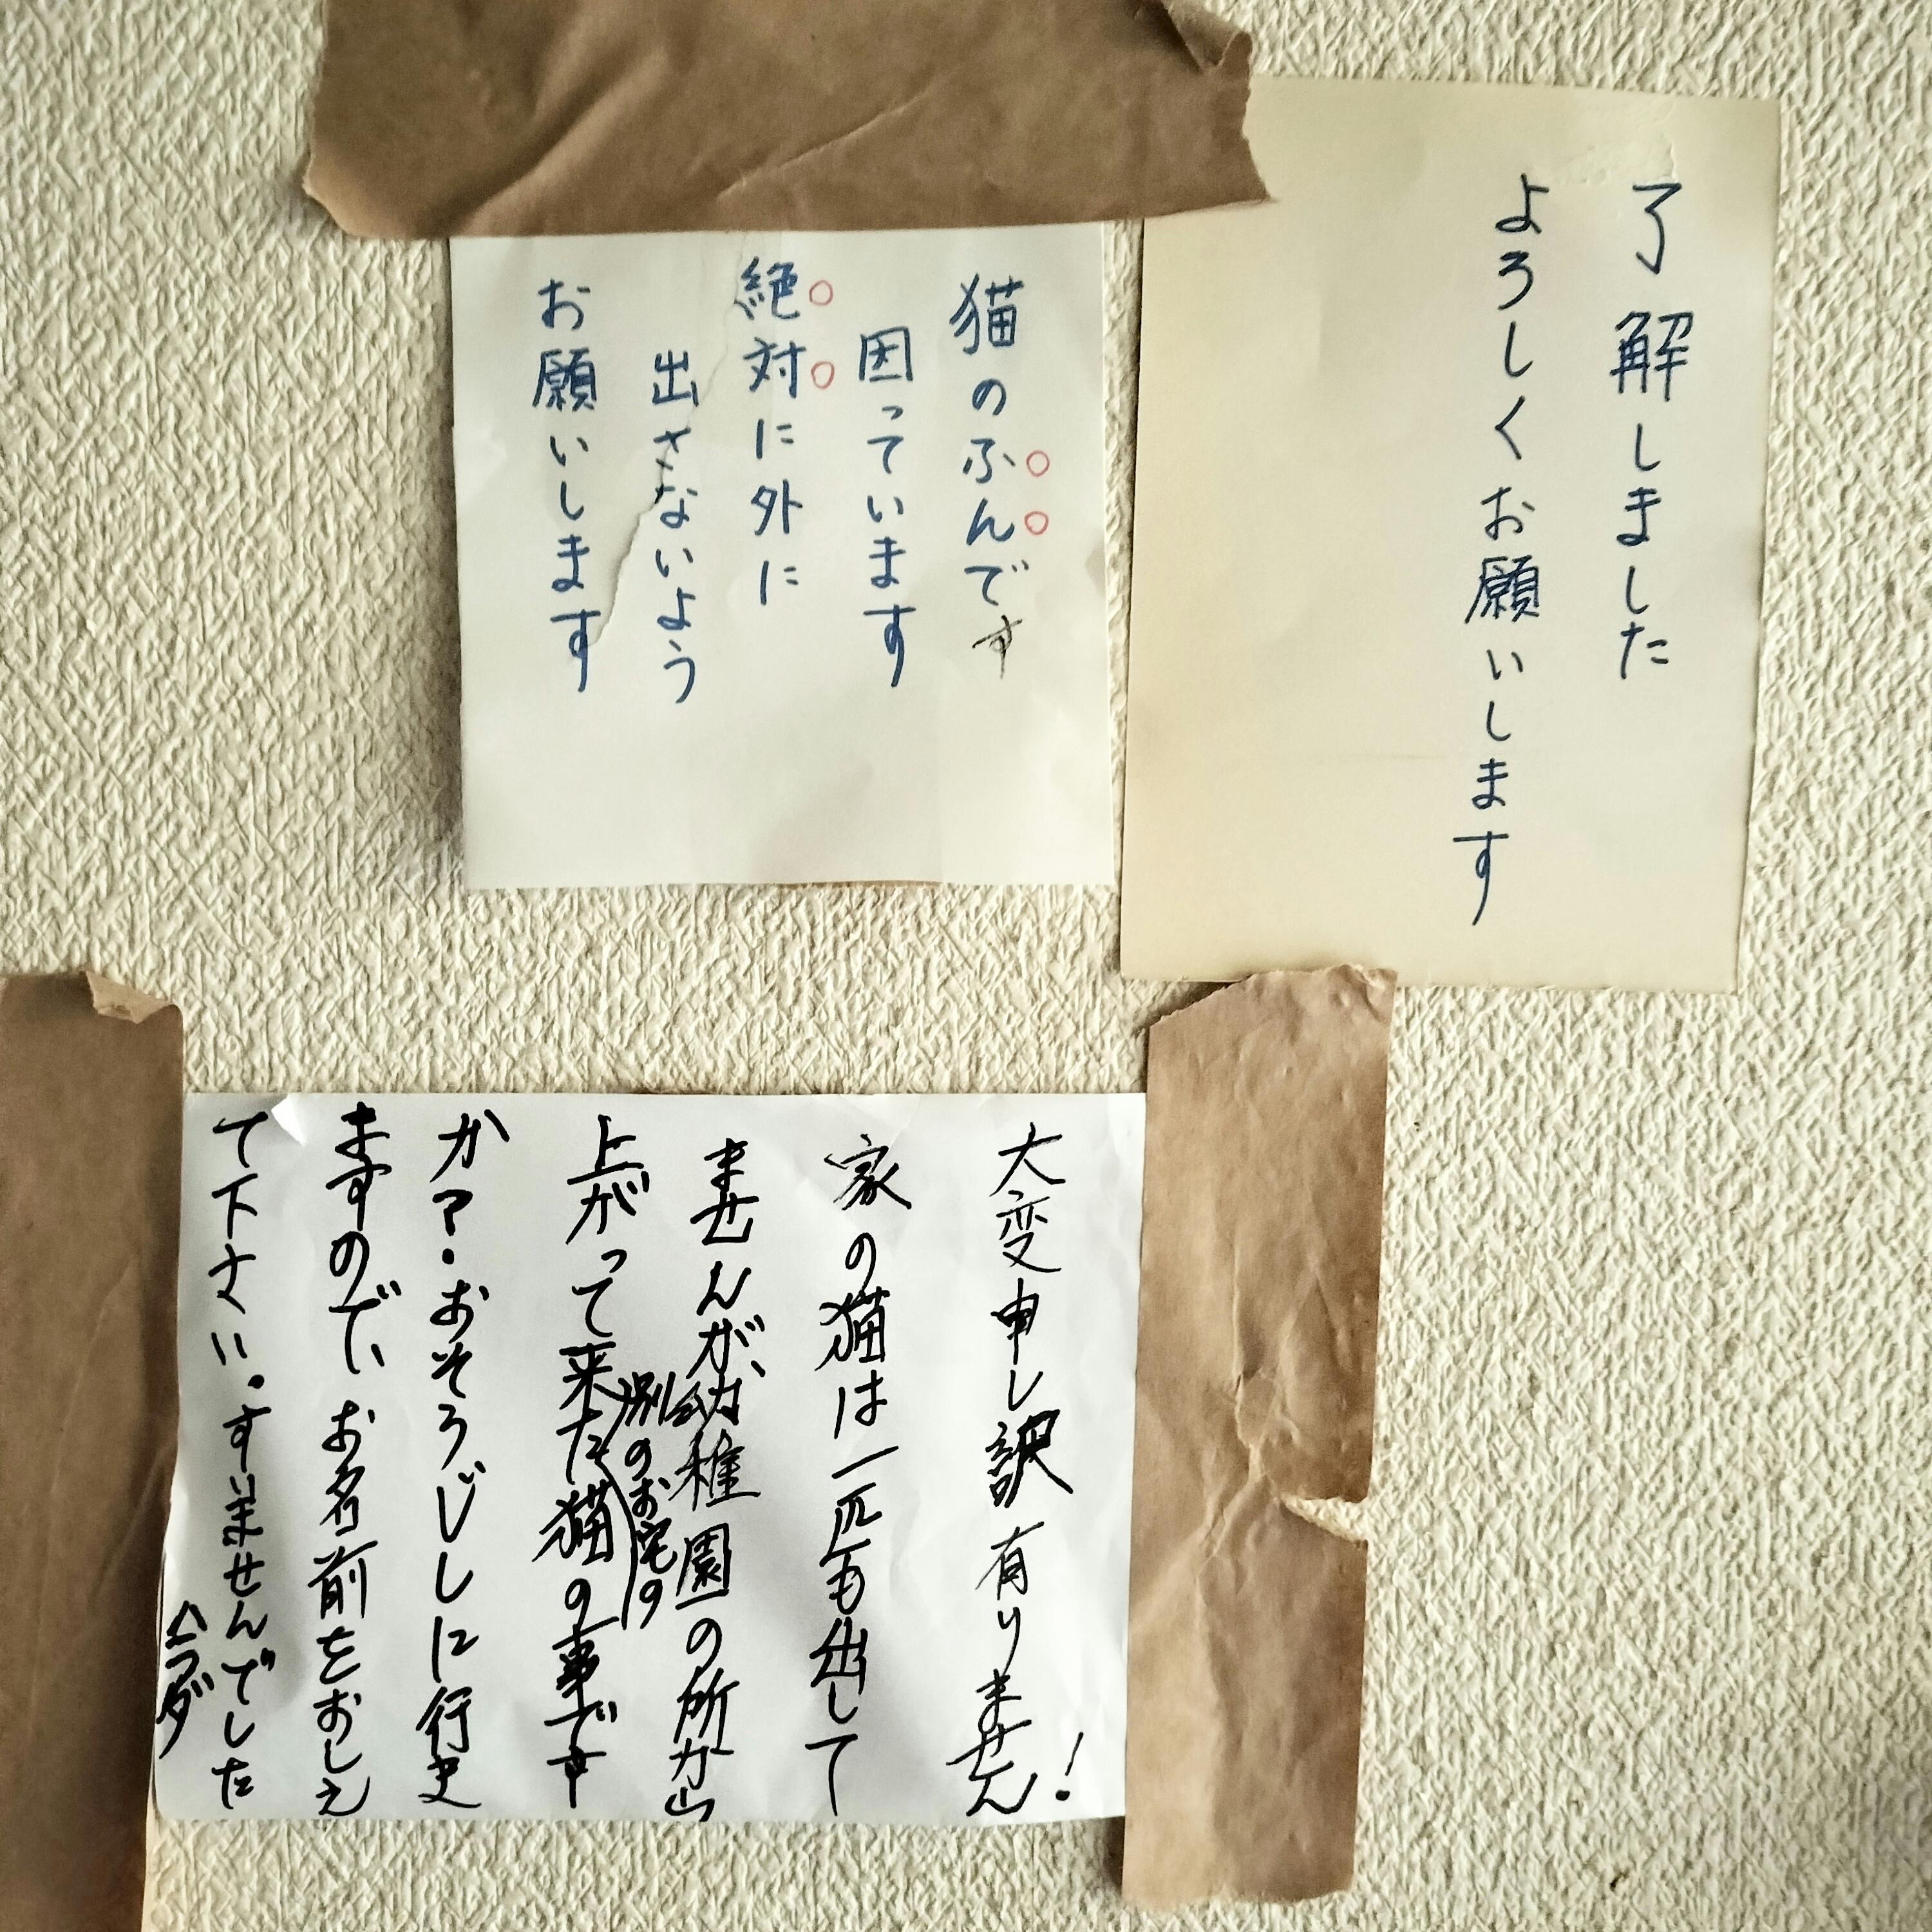 了解しました
よろしくお願いします
猫のふんです
困っています
絶対に外に
出さないよう
お願いします
大変申し訳有りません!
家の猫は一匹も出して
ませんが、幼稚園の所から
別のお宅の
上がって来た猫の事です
か?・おそうじしに行き
ますので、お名前をおしえ
て下さい・すいませんでした
ムラダ